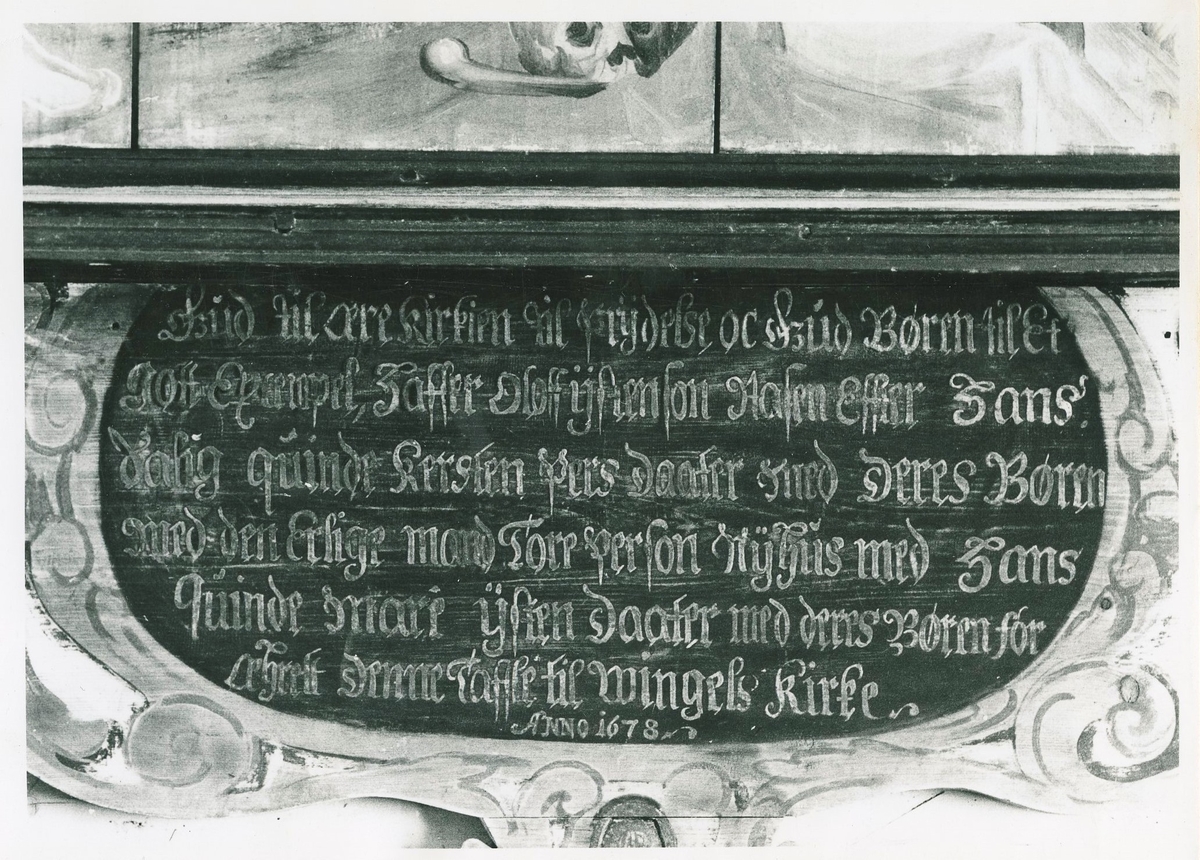 Gud til ære Kirkien til Prÿdelse oc Gud Børen til Et
Got Exempel, Haffer Oloff ÿstenson Aasen Effter Hans
Salig quinde Kersten Pers Daater med Deres Børen
med den Erlige mand Tore Person Nÿhus med Hans
Quinde Mare ÿsten Daater med deres Børen for
æhret Denne Taffle til Wingels Kirke
ANNO 1678